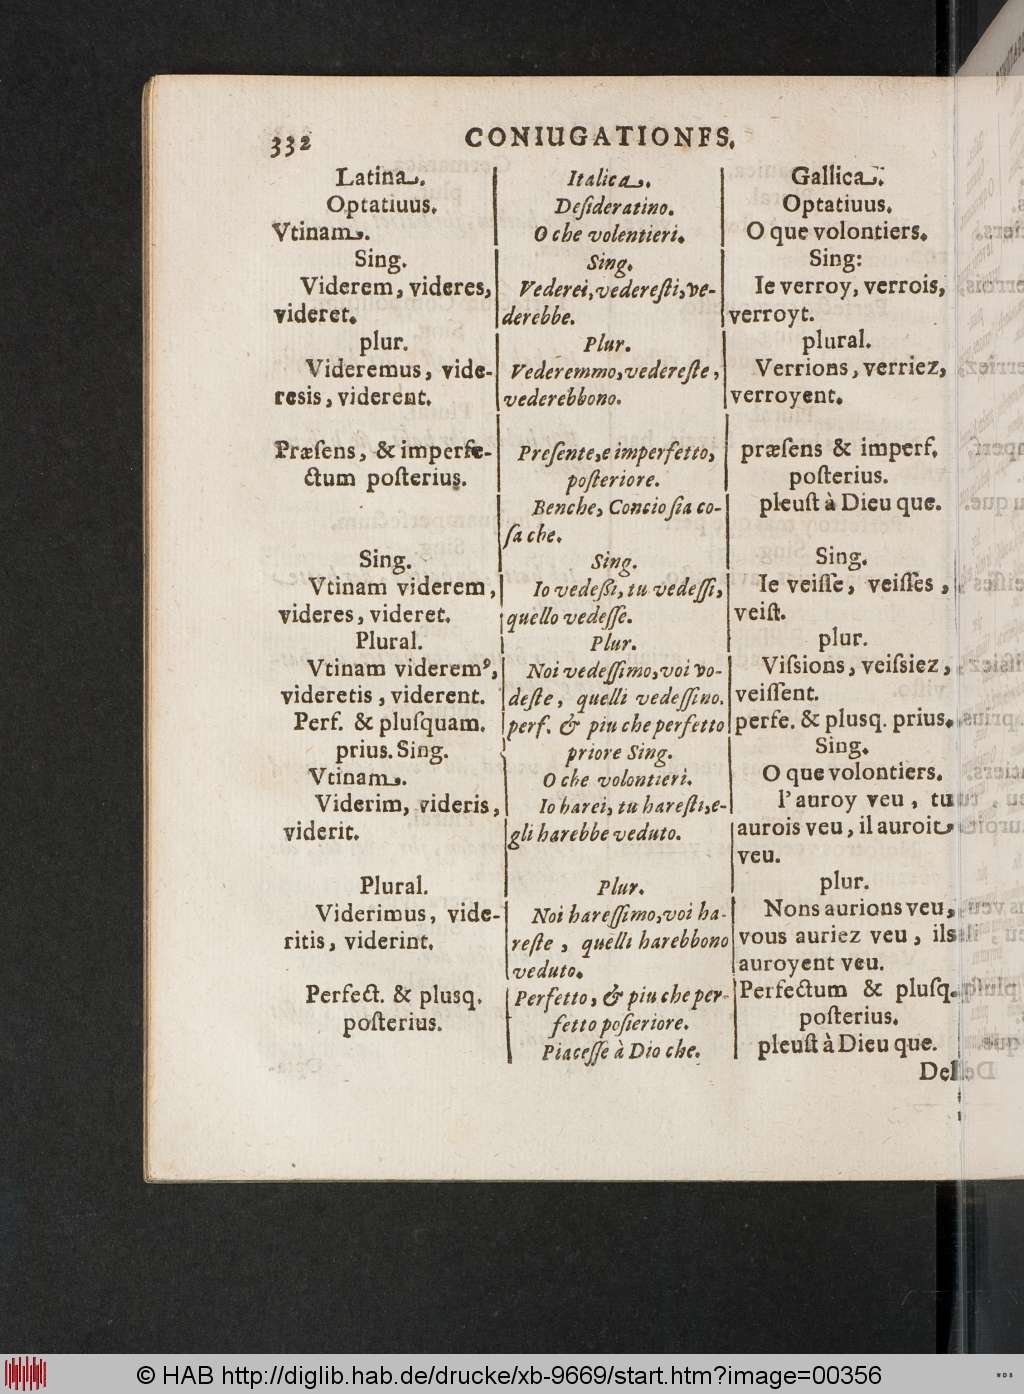 332
CONIUGATIONES.
Latina.
Optatiuus.
Vtinam.
Sing.
Viderem, videres,
videret.
plur.
Videremus, vide-
resis, viderent.
Præſens, & imperfe-
ctum poſterius.
Sing.
Vtinam viderem,
videres, videret.
Plural.
Vtinam videremꝰ,
videretis, viderent.
Perf. & pluſquam.
prius. Sing.
Vtinam.
Viderim, videris,
viderit.
Plural.
Viderimus, vide-
ritis, viderint.
Perfect. & plusq.
poſterius.
Italica.
Deſideratino.
O che volentieri.
Sing.
Vederei, vedereſti, ve-
derebbe.
Plur.
Vederemmo, vedereſte,
vederebbono.
Preſente, e imperfetto,
poſteriore.
Benche, Concio ſia co-
ſa che.
Sing.
Io vedeßi, tu vedeſſi,
quello vedeſſe.
Plur.
Noi vedeſſimo, voi vo-
deſte, quelli vedeſſino.
perf. & piu che perfetto
priore Sing.
O che volontieri.
Io harei, tu hareſti, e-
gli harebbe veduto.
Plur.
Noi hareſſimo, voi ha-
reſte, quelli harebbono
veduto.
Perfetto, & piu che per-
fetto poſieriore.
Piaceſſe à Dio che.
Gallica.
Optatiuus.
O que volontiers.
Sing:
Ie verroy, verrois,
verroyt.
plural.
Verrions, verriez,
verroyent.
præſens & imperf.
poſterius.
pleuſt à Dieu que.
Sing.
Ie veiſſe, veiſſes,
veiſt.
plur.
Viſsions, veiſsiez,
veiſſent.
perfe. & plusq. prius.
Sing.
O que volontiers.
l'auroy veu, tu
aurois veu, il auroit
veu.
plur.
Nons aurions veu,
vous auriez veu, ils
auroyent veu.
Perfectum & pluſq.
poſterius.
pleuſt à Dieu que.
Del
© HAB http://diglib.hab.de/drucke/xb-9669/start.htm?image=00356